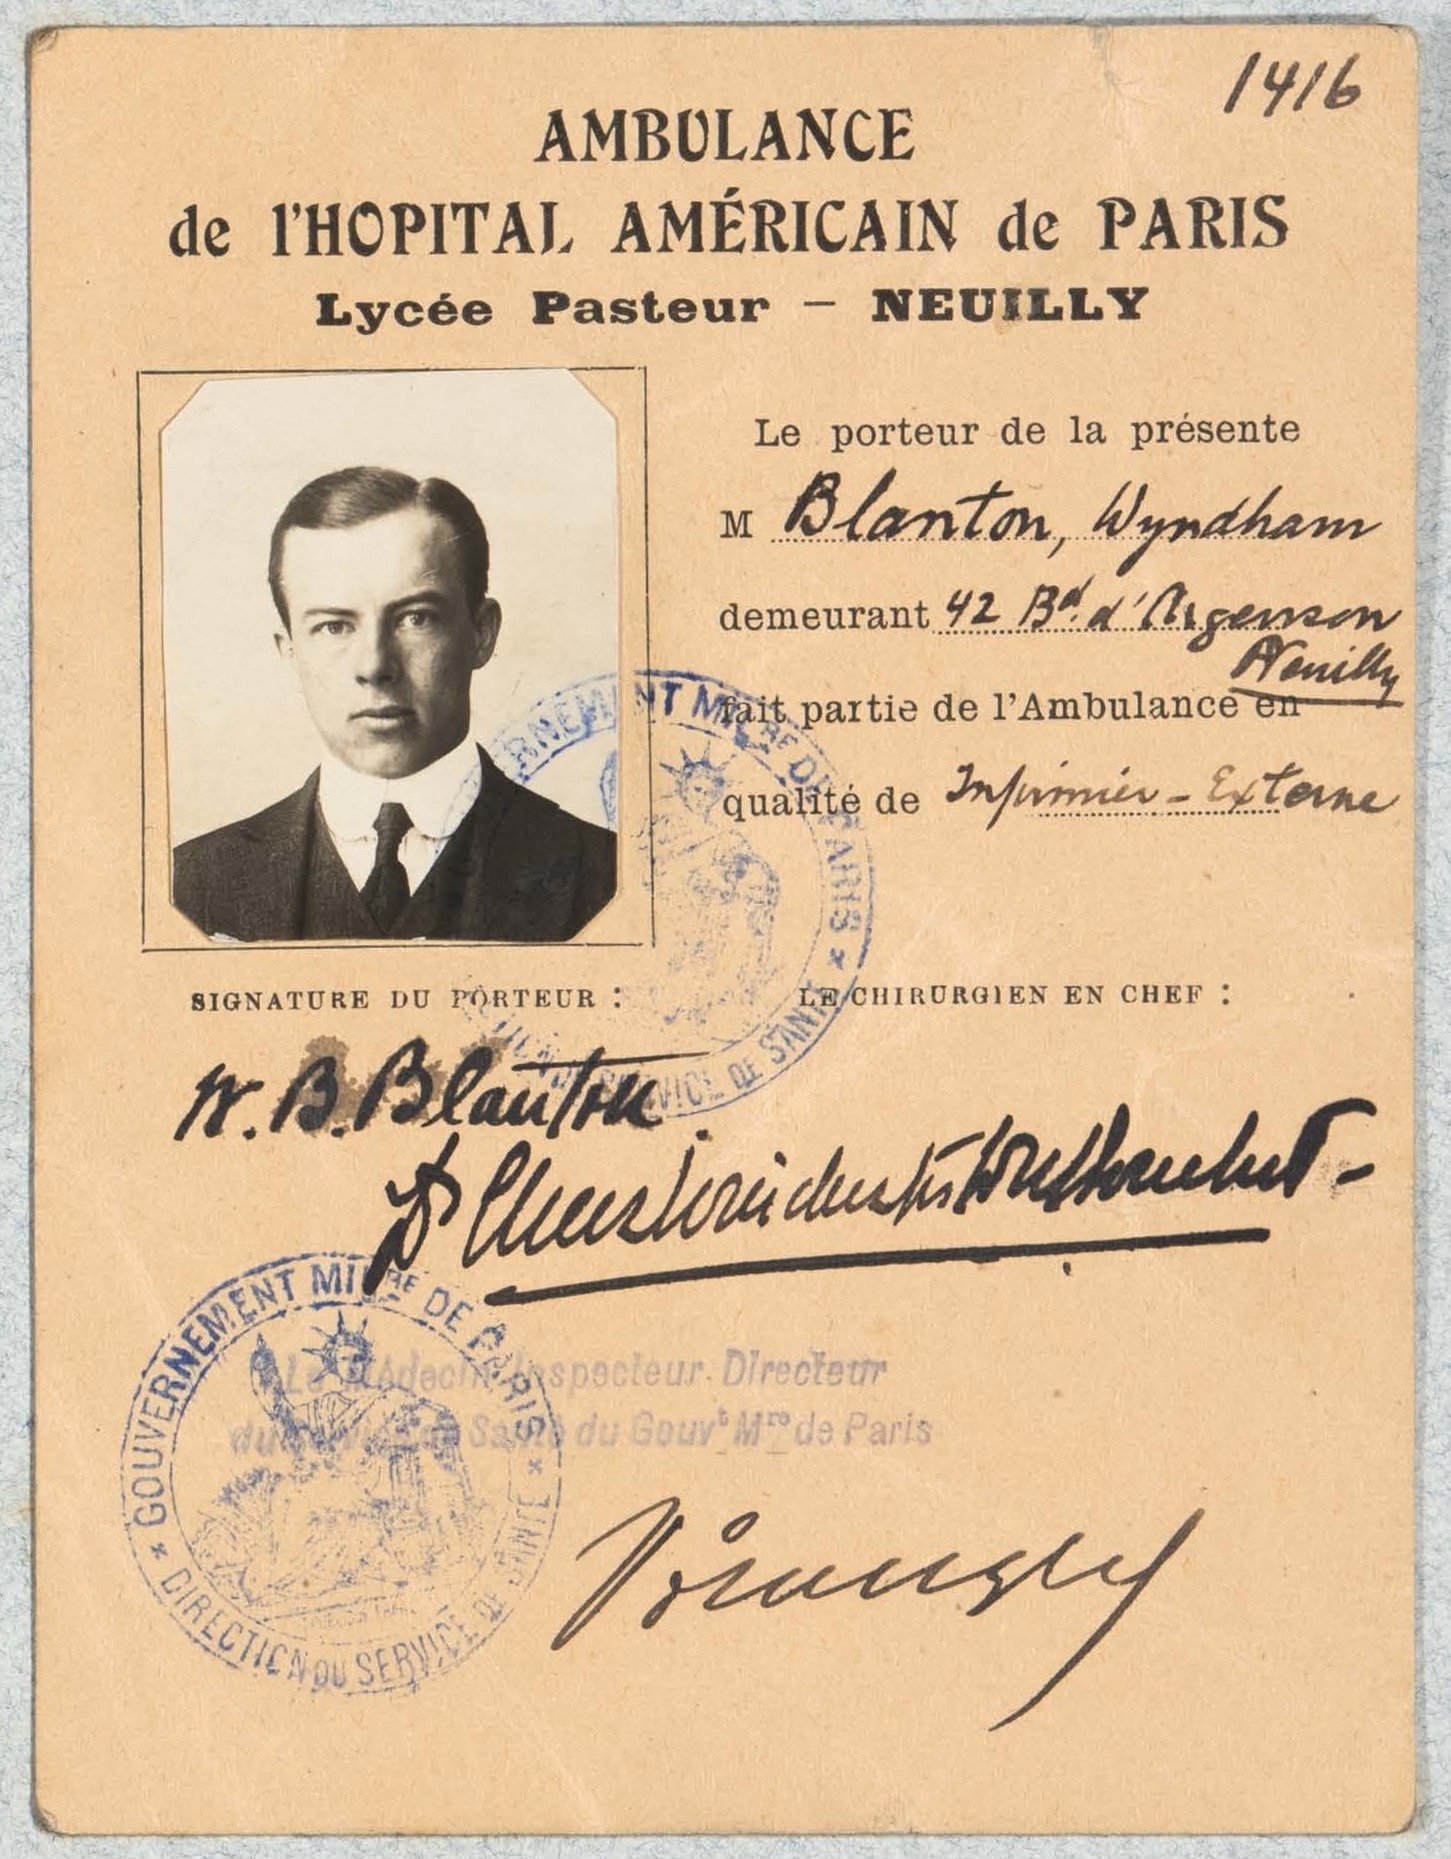 1416
AMBULANCE
de l'HOPITAL AMÉRICAIN de PARIS
Lycée Pasteur — NEUILLY
Le porteur de la présente
M Blanton, Wyndham
demeurant 42 Bd. d'Argenson
Neuilly
fait partie de l'Ambulance en
qualité de Infirmier - Externe
SIGNATURE DU PORTEUR :
LE CHIRURGIEN EN CHEF :
W. B. Blanton.
GOUVERNEMENT MILRE DE PARIS
DIRECTION DU SERVICE DE SANTÉ
Le Médecin Inspecteur Directeur
du Service de Santé du Gouvt Mre de Paris
GOUVERNEMENT MILRE DE PARIS
DIRECTION DU SERVICE DE SANTÉ